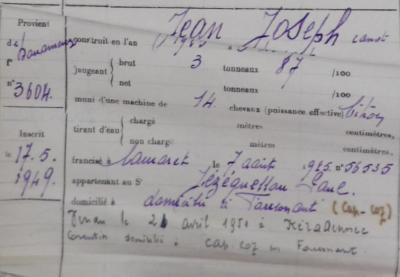 Provient
Jean Joseph canot
construit en l'an
jaugeant brut 3 tonneaux 87 /100
net tonneaux /100
n° 3604
muni d'une machine de 14 chevaux (puissance effective)
tirant d'eau chargé mètres centimètres,
non chargé mètres centimètres,
Inscrit
le 17.5.1949
francisé à Camaret le 7 août n° 56535
appartenant au Sr Jézéquellou Paul
domicilié à domicilié à Fouesnant (Cap-Coz)
le 21 avril 1951 à
Corentin domicilié à Cap Coz en Fouesnant